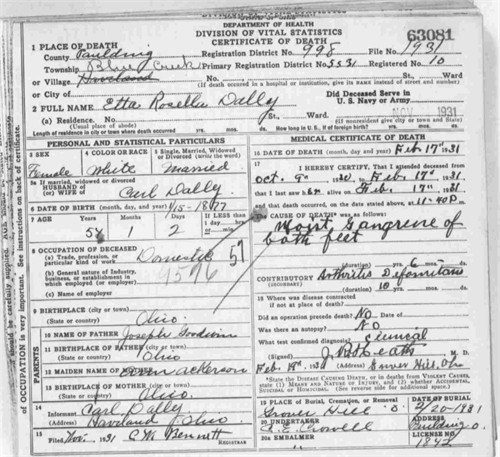 DEPARTMENT OF HEALTH
DIVISION OF VITAL STATISTICS
CERTIFICATE OF DEATH
63081
1 PLACE OF DEATH
County Paulding Registration District No. 998 File No. 1931
Township Blue Creek Primary Registration District No. 5531 Registered No. 10
or Village Haveland No. St., Ward
(If death occurred in a hospital or institution, give its NAME instead of street and number)
or City of
Did Deceased Serve in
U. S. Navy or Army
2 FULL NAME Etta Rosella Dally
NOV 1931
(a) Residence. No. St., Ward.
(Usual place of abode) (If nonresident give city or town and State)
Length of residence in city or town where death occurred yrs. mos. ds. How long in U. S., if of foreign birth? yrs. mos. ds.
PERSONAL AND STATISTICAL PARTICULARS
3 SEX
Female
4 COLOR OR RACE
White
5 Single, Married, Widowed
or Divorced (write the word)
Married
5a If married, widowed or divorced
HUSBAND of
(or) WIFE of
Carl Dally
6 DATE OF BIRTH (month, day, year)
7 AGE Years Months Days
1 2
If LESS than
1 day, hrs.
or min.
8 OCCUPATION OF DECEASED
(a) Trade, profession, or
particular kind of work
Domestic 57
(b) General nature of Industry,
business, or establishment in
which employed (or employer)
9596
(c) Name of employer
9 BIRTHPLACE (city or town)
(State or country) Ohio.
PARENTS
10 NAME OF FATHER Joseph Godwin
11 BIRTHPLACE OF FATHER (city or town)
(State or country) Ohio
12 MAIDEN NAME OF MOTHER Ackerson
13 BIRTHPLACE OF MOTHER (city or town)
(State or country) Ohio.
14
Informant Carl Dally
(Address) Haveland Ohio
15
Filed Nov. 1931 C.W. Bennett
REGISTRAR
MEDICAL CERTIFICATE OF DEATH
16 DATE OF DEATH (month, day, and year) Feb 17 1931
17
I HEREBY CERTIFY, That I attended deceased from
Oct. 8 1930, to Feb. 17th 1931
that I last saw her alive on Feb. 17th 1931,
and that death occurred, on the date stated above, at 11-40 P m.
The CAUSE OF DEATH was as follows:
Moist Gangrene of
both feet
(duration) yrs. 6 mos. ds.
CONTRIBUTORY Arthritis Deformitans
(SECONDARY)
(duration) 10 yrs. mos. ds.
18 Where was disease contracted
if not at place of death?
Did an operation precede death? No Date of
Was there an autopsy? NO
What test confirmed diagnosis? Clinical
(Signed) M. D.
Feb 18, 1931 (Address)
State the Disease Causing Death, or in deaths from Violent Causes,
state (1) Means and Nature of Injury, and (2) whether Accidental,
Suicidal, or Homicidal. (See reverse side for additional space.)
19 Place of Burial, Cremation, or Removal
Grover Hill O.
DATE OF BURIAL
2/20-1931
20 UNDERTAKER
C. E. Crowell
ADDRESS
Paulding O.
20a EMBALMER
"
LICENSE NO
1842
of OCCUPATION is very important. See instructions on back of certificate.